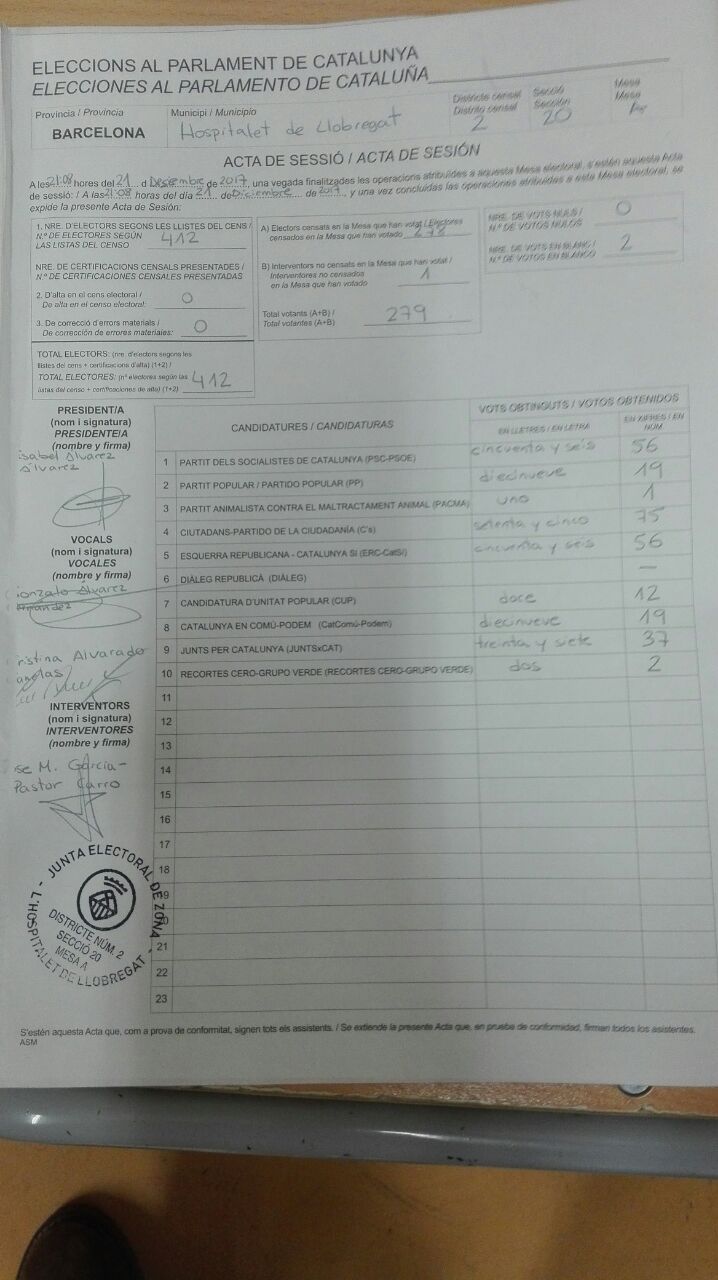 ELECCIONS AL PARLAMENT DE CATALUNYA
ELECCIONES AL PARLAMENTO DE CATALUÑA
Província / Provincia
BARCELONA
Municipi / Municipio
Hospitalet de Llobregat
Districte censal
Distrito censal
2
Secció
Sección
20
Mesa
Mesa
A
ACTA DE SESSIÓ / ACTA DE SESIÓN
A les 21:08 hores del 21 d Desembre de 2017, una vegada finalitzades les operacions atribuïdes a aquesta Mesa electoral, s'estén aquesta Acta
de sessió: / A las 21:08 horas del día 21 de Diciembre de 2017, y una vez concluidas las operaciones atribuidas a esta Mesa electoral, se
expide la presente Acta de Sesión:
1. NRE. D'ELECTORS SEGONS LES LLISTES DEL CENS /
N.º DE ELECTORES SEGÚN
LAS LISTAS DEL CENSO
412
NRE. DE CERTIFICACIONS CENSALS PRESENTADES /
N.º DE CERTIFICACIONES CENSALES PRESENTADAS
2. D'alta en el cens electoral /
De alta en el censo electoral:
0
3. De correcció d'errors materials /
De corrección de errores materiales:
0
TOTAL ELECTORS: (nre. d'electors segons les
llistes del cens + certificacions d'alta) (1+2) /
TOTAL ELECTORES: (nº electores según las
listas del censo + certificaciones de alta) (1+2)
412
A) Electors censats en la Mesa que han votat / Electores
censados en la Mesa que han votado 278
B) Interventors no censats en la Mesa que han votat /
Interventores no censados
en la Mesa que han votado
1
Total votants (A+B) /
Total votantes (A+B)
279
NRE. DE VOTS NULS /
N.º DE VOTOS NULOS
0
NRE. DE VOTS EN BLANC /
N.º DE VOTOS EN BLANCO
2
PRESIDENT/A
(nom i signatura)
PRESIDENTE/A
(nombre y firma)
isabel Álvarez
Álvarez
VOCALS
(nom i signatura)
VOCALES
(nombre y firma)
Gonzalo Álvarez
ristina Alvarado
INTERVENTORS
(nom i signatura)
INTERVENTORES
(nombre y firma)
se M. García-
Pastor Carro
CANDIDATURES / CANDIDATURAS
VOTS OBTINGUTS / VOTOS OBTENIDOS
EN LLETRES / EN LETRA
EN XIFRES / EN NÚM.
1 PARTIT DELS SOCIALISTES DE CATALUNYA (PSC-PSOE) cincuenta y seis 56
2 PARTIT POPULAR / PARTIDO POPULAR (PP) diecinueve 19
3 PARTIT ANIMALISTA CONTRA EL MALTRACTAMENT ANIMAL (PACMA) uno 1
4 CIUTADANS-PARTIDO DE LA CIUDADANÍA (C's) setenta y cinco 75
5 ESQUERRA REPUBLICANA - CATALUNYA SÍ (ERC-CatSí) cincuenta y seis 56
6 DIÀLEG REPUBLICÀ (DIÀLEG) —
7 CANDIDATURA D'UNITAT POPULAR (CUP) doce 12
8 CATALUNYA EN COMÚ-PODEM (CatComú-Podem) diecinueve 19
9 JUNTS PER CATALUNYA (JUNTSxCAT) treinta y siete 37
10 RECORTES CERO-GRUPO VERDE (RECORTES CERO-GRUPO VERDE) dos 2
11
12
13
14
15
16
17
18
19
20
21
22
23
JUNTA ELECTORAL DE ZONA - L'HOSPITALET DE LLOBREGAT -
DISTRICTE NÚM. 2
SECCIÓ 20
MESA A
S'estén aquesta Acta que, com a prova de conformitat, signen tots els assistents. / Se extiende la presente Acta que, en prueba de conformidad, firman todos los asistentes.
ASM